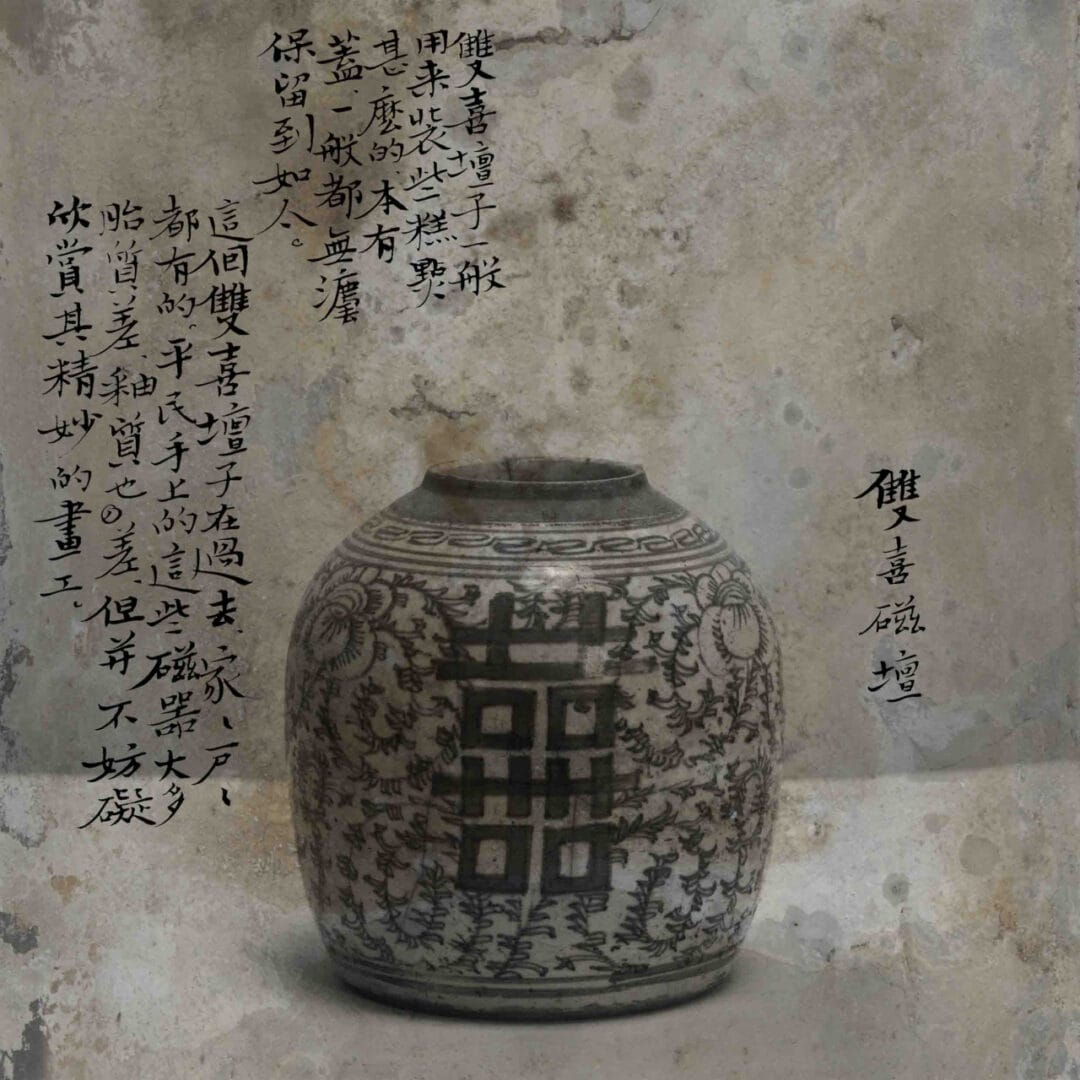 雙喜磁壇
雙喜壇子一般
用来裝些糕點
甚麼的,本有
蓋,一般都無灋
保留到如今。
這個雙喜壇子在過去,家、戶、
都有的。平民手上的這些磁器大多
胎質差、釉質也差,但并不妨礙
欣賞其精妙的畫工。
囍